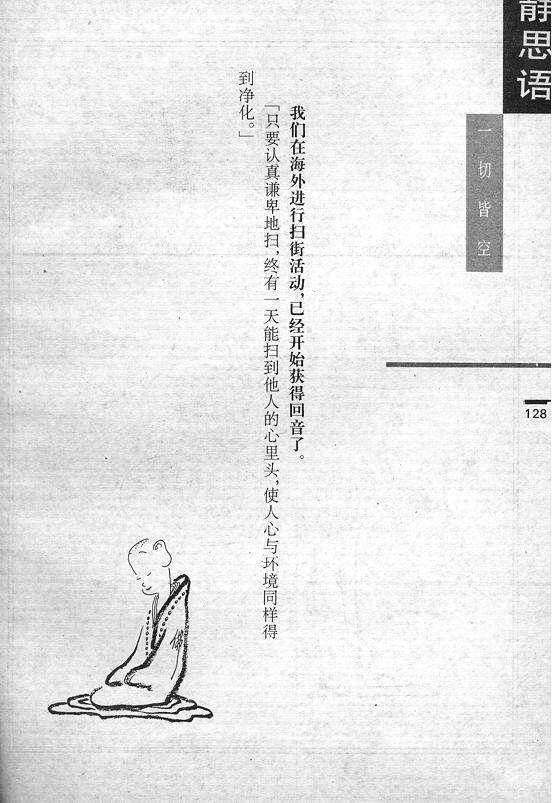 静思语
一切皆空
128
我们在海外进行扫街活动，已经开始获得回音了。
「只要认真谦卑地扫，终有一天能扫到他人的心里头，使人心与环境同样得
到净化。」